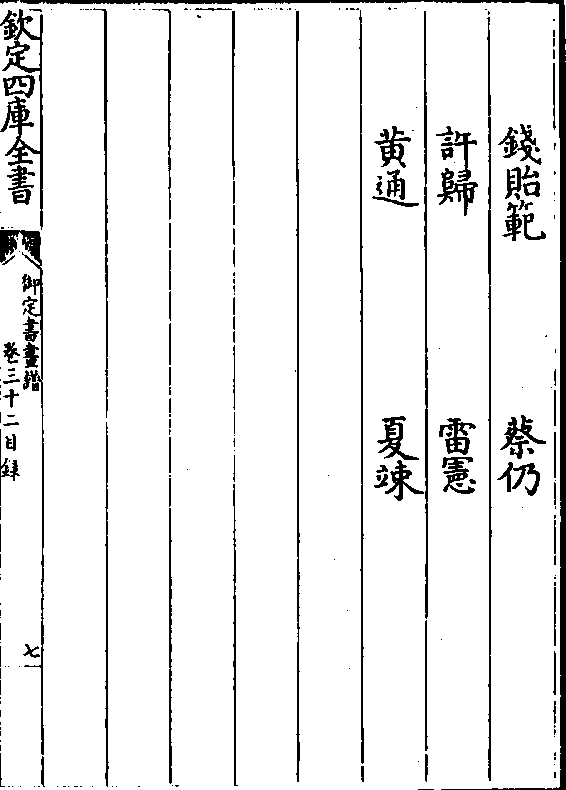 錢貽範　蔡仍
許歸　雷憲
黄通　夏竦
欽定四庫全書
御定書畫譜
卷三十二目録
七